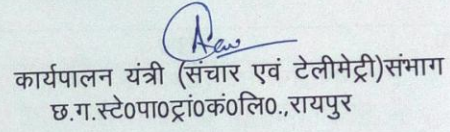 कार्यपालन यंत्री (संचार एवं टेलीमेट्री)संभाग
छ.ग.स्टे०पा०ट्रां०कं०लि०.,रायपुर